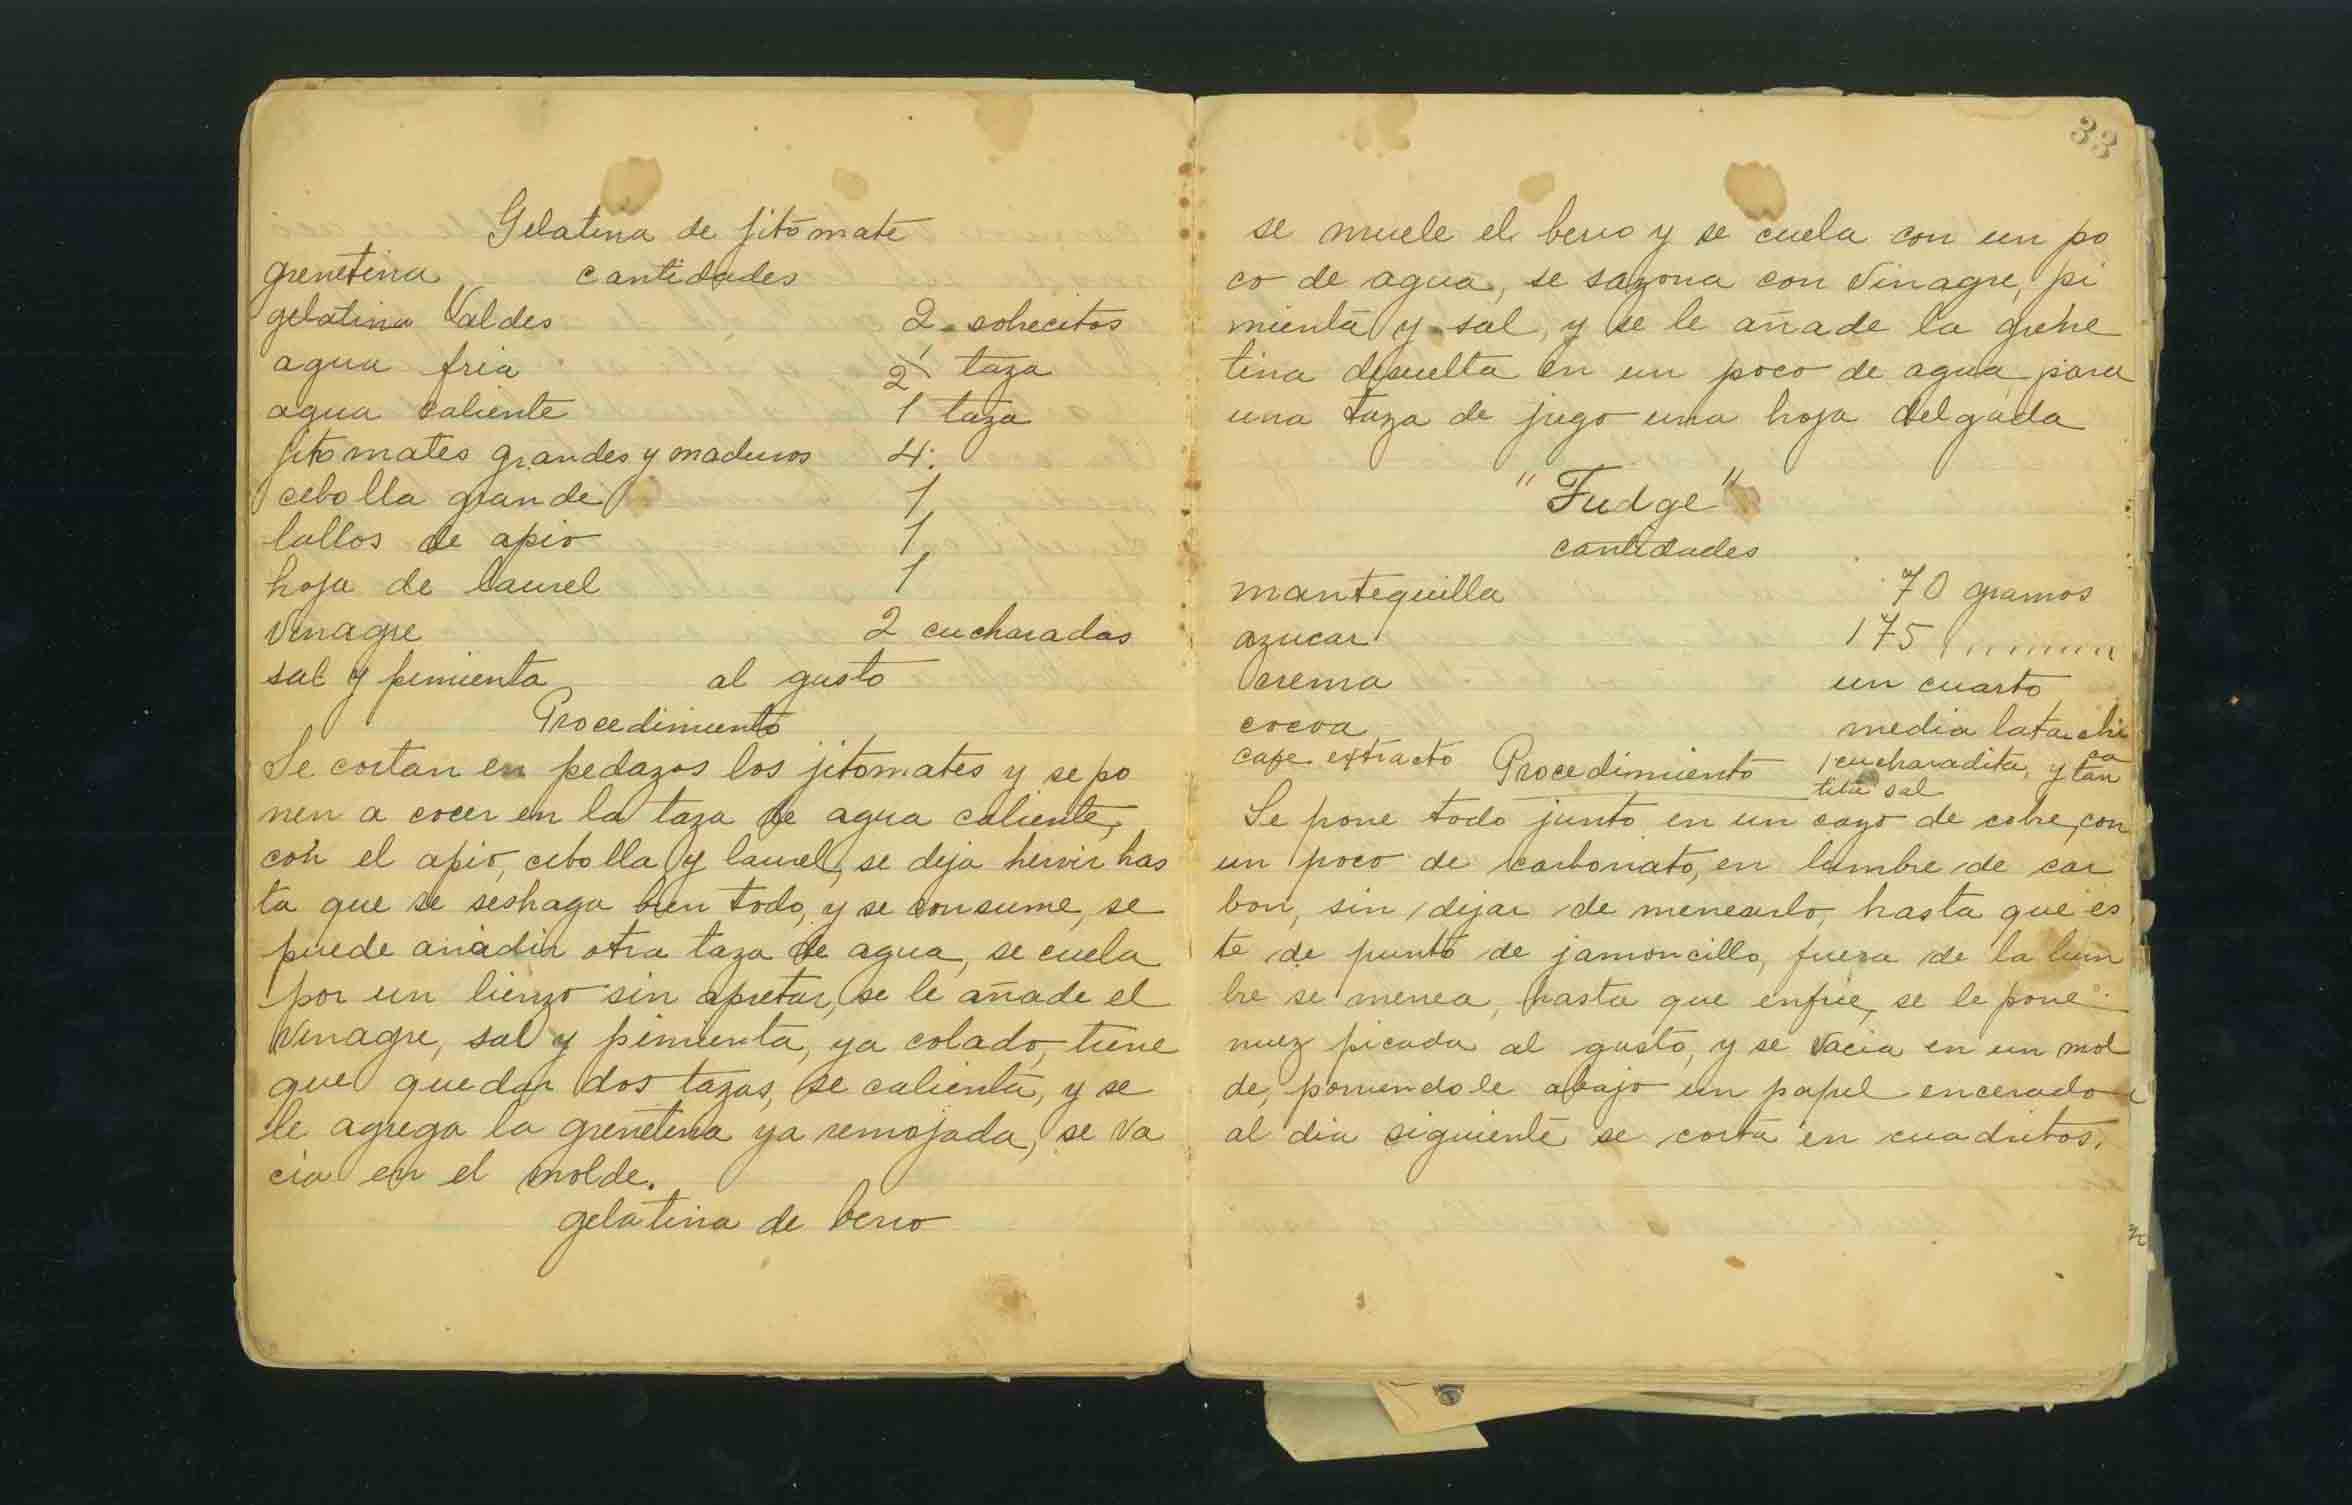 Gelatina de jitomate
grenetina cantidades
gelatina Valdes 2 sobrecitos
agua fria 1/2 taza
agua caliente 1 taza
jitomates grandes y maduros 4.
cebolla grande 1
tallos de apio 1
hoja de laurel 1
vinagre 2 cucharadas
sal y pimienta al gusto
Procedimiento
Se cortan en pedazos los jitomates y se po
nen a cocer en la taza de agua caliente,
con el apio, cebolla y laurel, se deja hervir has
ta que se seshaga bien todo, y se consume, se
puede añadir otra taza de agua, se cuela
por un lienzo sin apretar, se le añade el
vinagre, sal y pimienta, ya colado, tiene
que quedar dos tazas, se calienta, y se
le agrega la grenetina ya remojada, se va
cia en el molde.
gelatina de berro
33
se muele el berro y se cuela con un po
co de agua, se sazona con vinagre, pi
mienta y sal, y se le añade la grene
tina disuelta en un poco de agua para
una taza de jugo una hoja delgada
"Fudge"
cantidades
mantequilla 70 gramos
azucar 175 """"""
crema un cuarto
cocoa media lata chi
ca
cafe extracto 1 cucharadita, y tan
Procedimiento
tita sal
Se pone todo junto en un cazo de cobre, con
un poco de carbonato, en lumbre de car
bon, sin dejar de menearlo, hasta que es
te de punto de jamoncillo, fuera de la lum
bre se menea, hasta que enfrie, se le pone
nuez picada al gusto, y se vacia en un mol
de, poniendole abajo un papel encerado
al dia siguiente se corta en cuadritos.